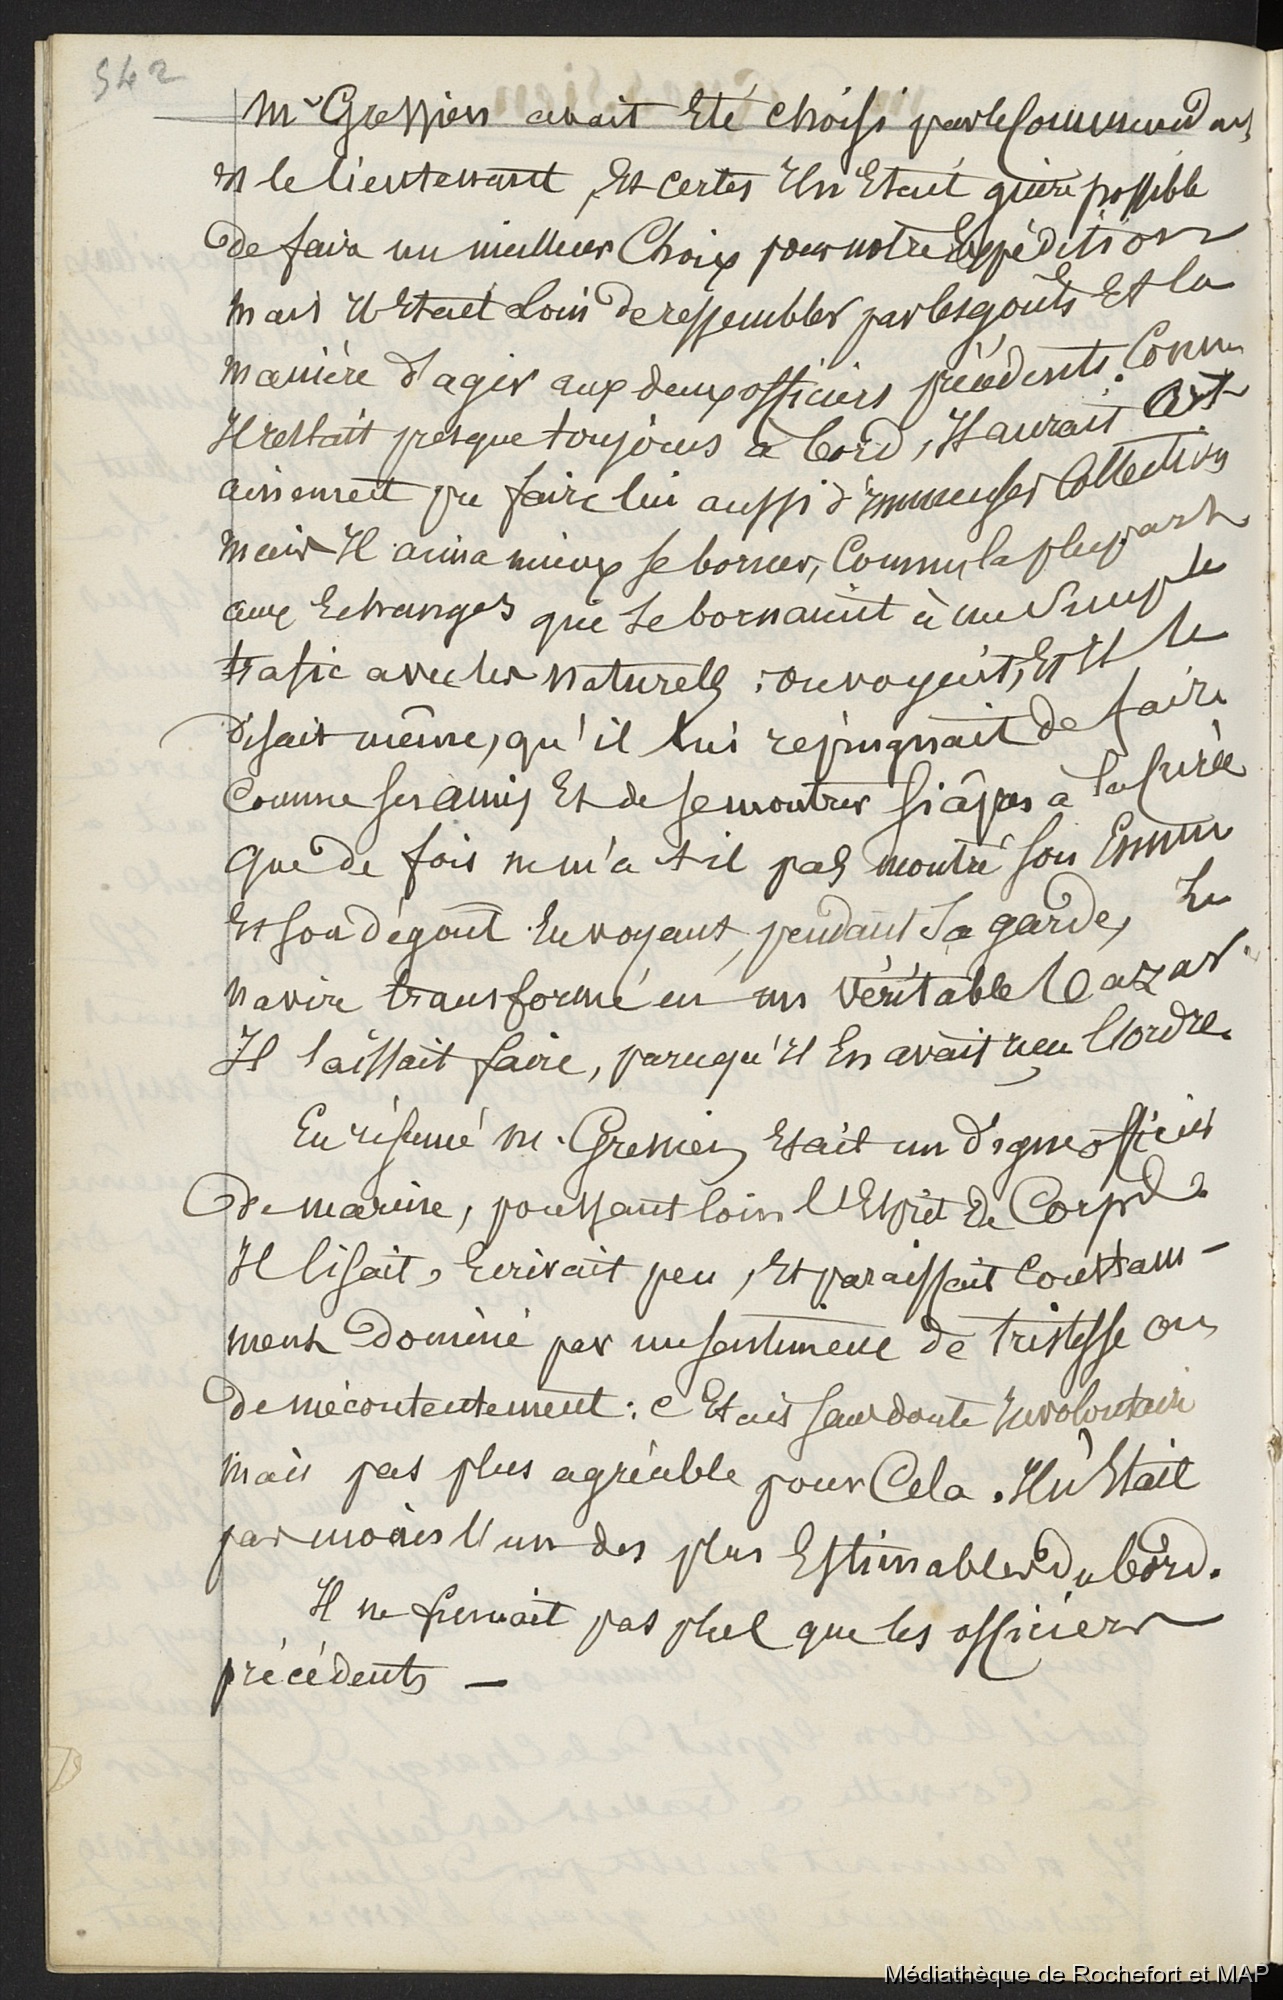 542
Mr Gressien avait Eté choisi par le Commandant
et le lieutenant, Et certes Il n'Etait guère possible
de faire un meilleur Choix pour notre Expédition
mais Il Etait Loin de ressembler par les goûts Et la
manière d'agir aux deux officiers précédents. Comme
Il restait presque toujours à bord, Il aurait Cert
ainement pu faire lui aussi d'immenses Collections
mais Il aima mieux se borner, Comme la plupart
aux Echanges qui se bornaient à un Simple
trafic avec les naturels : on voyait, Et Il le
disait même, qu'il lui répugnait de faire
Comme ses amis Et de se montrer si âpres à la Curée
Que de fois ne m'a t-il pas montré son Ennui
Et son dégout En voyant, pendant Sa garde, le
navire transformé en un véritable bazar.
Il laissait faire, parcequ'Il En avait reçu l'ordre.
En résumé M. Gressien Etait un digne officier
de marine, poussant loin l'Esprit de Corps.
Il lisait, Ecrivait peu, Et paraissait Constam-
ment dominé par un sentiment de tristesse ou
de mécontentement : C'Etait sans doute Involontaire
mais pas plus agréable pour Cela. Il n'Etait
pas moins l'un des plus Estimables du bord.
Il ne fumait pas plus que les officiers
précédents —
Médiathèque de Rochefort et MAP